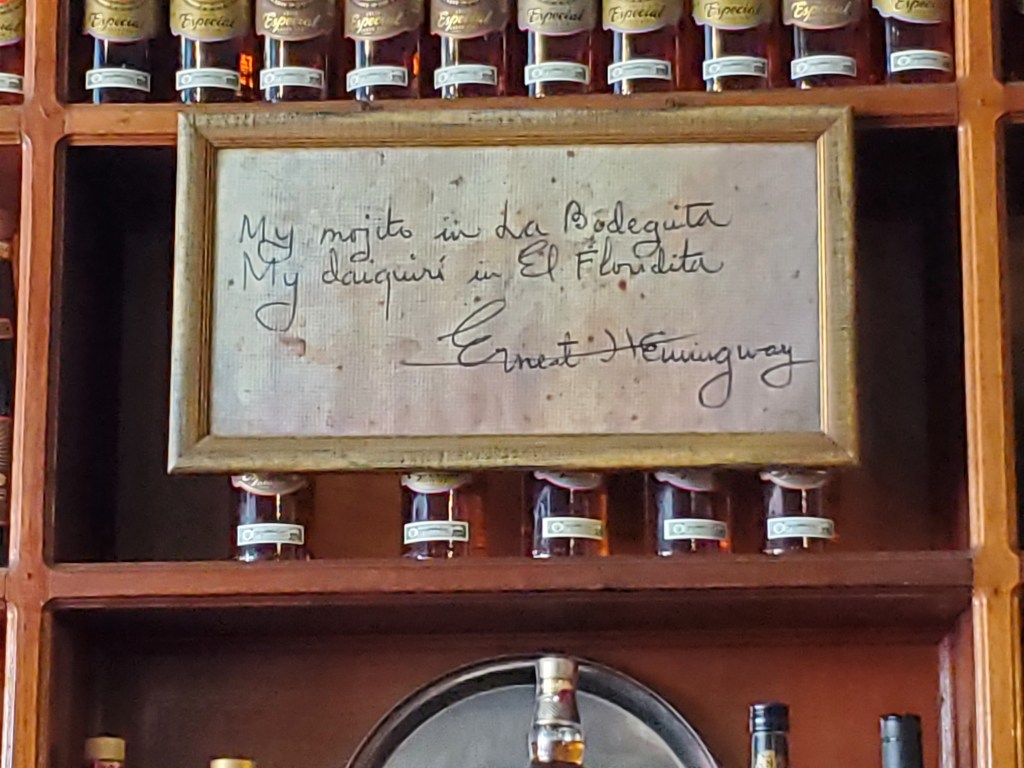 Especial Especial Especial Especial Especial Especial Especial Especial Especial Especial
My mojito in La Bodeguita
My daiquirí in El Floridita
Ernest Hemingway